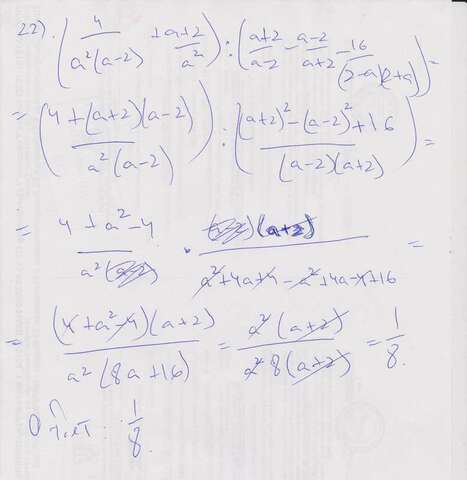 22). (4/(a²(a-2)) + (a+2)/a²) : ((a+2)/(a-2) - (a-2)/(a+2) - 16/((2-a)(2+a))) =
= ((4+(a+2)(a-2))/(a²(a-2))) : (((a+2)²-(a-2)²+16)/((a-2)(a+2))) =
= (4+a²-4)/(a²(a-2)) · ((a-2)(a+2))/(a²+4a+4-a²+4a-4+16) =
= ((4+a²-4)(a+2))/(a²(8a+16)) = (a²(a+2))/(a²8(a+2)) = 1/8.
Ответ: 1/8.